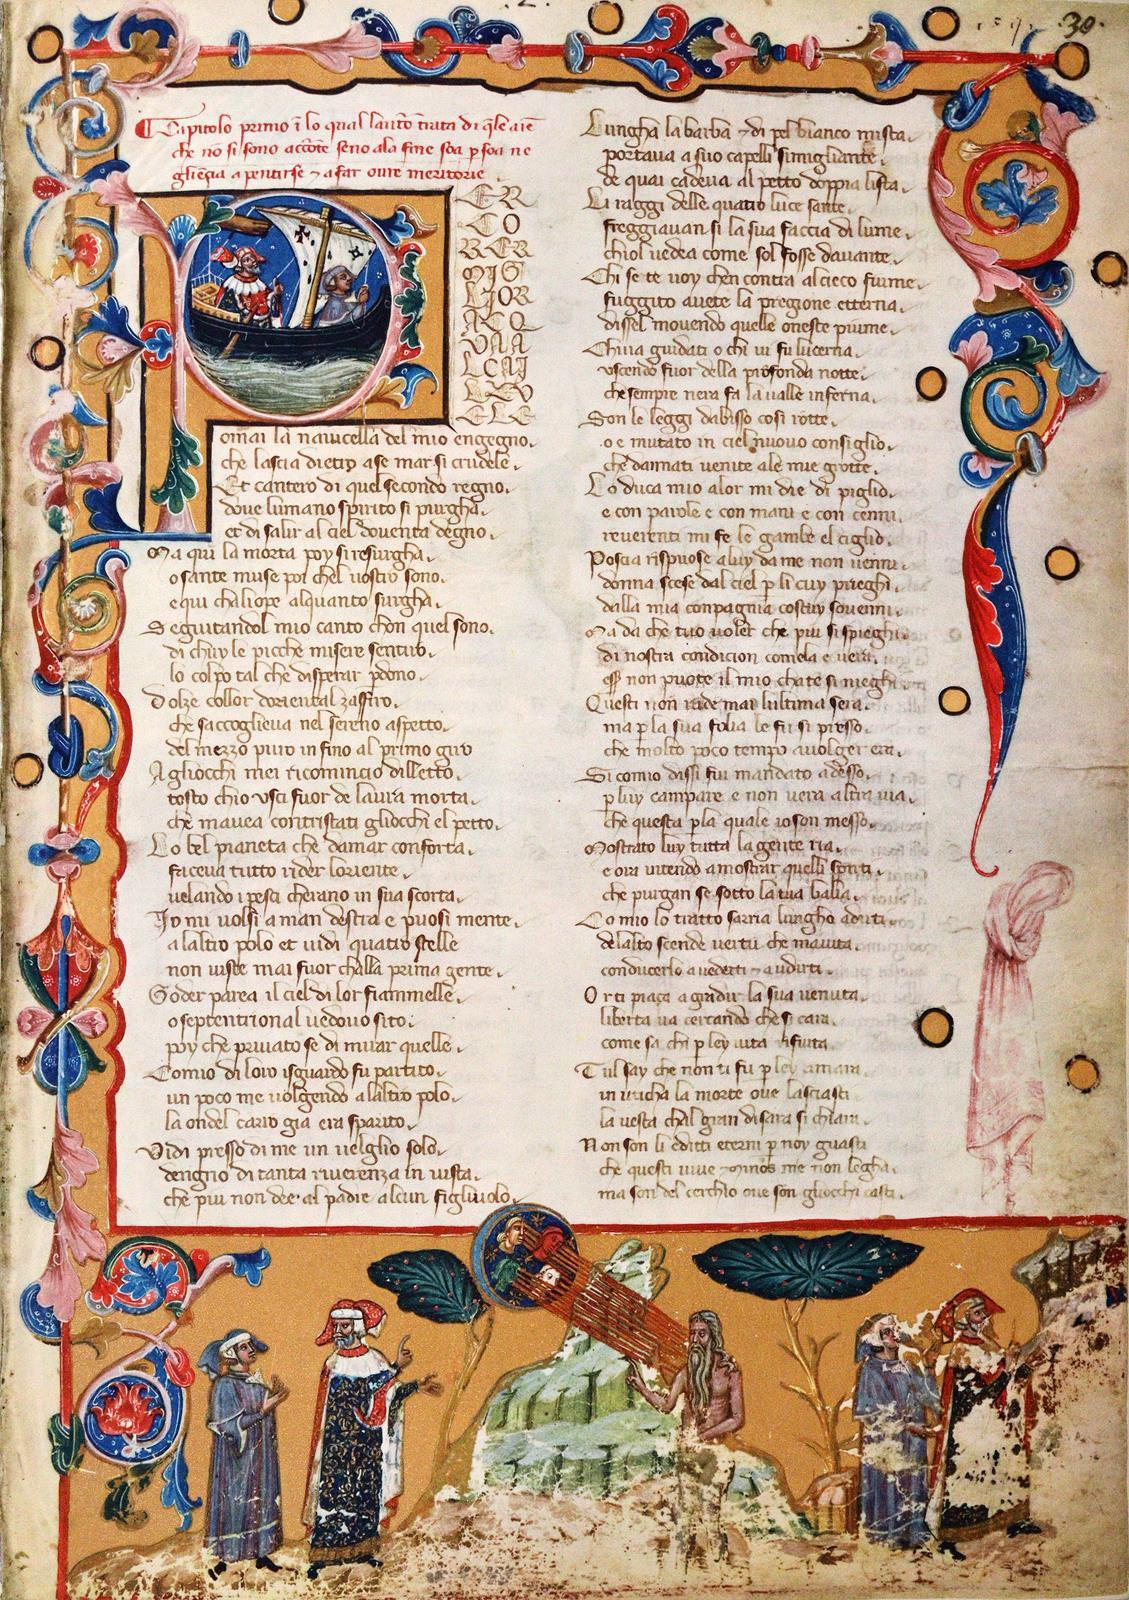 30
Capitolo primo i lo qual lauto trata di qle aie
che no si sono accote seno ala fine soa p soa ne
gliegia a pentirse ⁊ a far oure meritorie
P
ER
CO
RER
MIG
LIOR
ACQ
VAA
LCAI
LEV
ELE
omai la nauicella del mio engegno.
che lascia dietro a se mar si crudele.
Et cantero di quel secondo regno.
doue lumano spirito si purgha.
et di salir al ciel douenta degno.
Ma qui la morta poy si resurgha.
o sante muse poi chel uostro sono.
e qui chaliope alquanto surgha.
Seguitandol mio canto chon quel sono.
di chuy le picche misere sentiro.
lo colpo tal che disperar pdono.
Dolze collor doriental zaffiro.
che saccoglieua nel sereno aspetto.
del mezzo puro infino al primo giro
Agliocchi mei ricomincio dilletto.
tosto chio usci fuor de laura morta.
che mauea contristati gliocchi el petto.
Lo bel pianeta che damar conforta.
faceua tutto rider loriente.
uelando i pesci cherano in sua scorta.
Jy mi uolsi a man destra e puosi mente.
a laltro polo et uidi quatro stelle
non uiste mai fuor challa prima gente.
Goder parea il ciel di lor fiammelle.
o septentrional uedouo sito.
poy che priuato se di mirar quelle.
Comio di loro isguardo fu partito.
un poco me uolgendo a laltro polo.
la ondel carro gia era sparito.
Vidi presso di me un uelglio solo.
dengno di tanta riuerenza in uista.
che piu non dee al padre alcun figliuolo.
Lungha la barba ⁊ di pel bianco mista.
portaua a suo capelli simigliante.
de quai cadeua al petto doppia lista.
Li raggi delle quatro luce sante.
freggiauan si la sua faccia di lume.
chiol uedea come sol fosse dauante.
Chi se te uoy chen contra al cieco fiume
fuggito auete la pregione etterna.
dissel mouendo quelle oneste piume.
Chi ua guidati o chi ui fu lucerna.
uscendo fuor della profonda notte.
che sempre nera fa la ualle inferna.
Son le leggi dabisso cosi rotte.
o e mutato in ciel nuouo consiglio.
che dannati uenite ale mie grotte.
Lo duca mio alor mi die di piglio.
e con parole e con mani e con cenni.
reuerenti mi fe le gambe el ciglio.
Poscia rispuose a luy da me non uenni
donna scese dal ciel p li cuy prieghi.
dalla mia conpagnia costuy souenni.
Ma da che tuo uoler che piu si spieghi
di nostra condicion comela e uera.
non puote il mio cha te si nieghi.
Questi non uide mai lultima sera.
ma p la sua folia le fu si presso.
che molto poco tempo a uolger era.
Si comio dissi fui mandato adesso.
p luy campare e non uera altra uia.
che questa p la quale io son messo.
Mostrato luy tutta la gente ria.
e ora intendo a mostrar quelli spirti.
che purgan se sotto la tua balia.
Comio lo tratto sarria lungho a dirti.
delalto scende uertu che mauita.
conducerlo a uederti ⁊ a udirti.
Or ti piaca a gradir la sua uenuta.
liberta ua cercando che si cara.
come sa chi p ley uita rifiuta.
Tul say che non ti fu p ley amara.
in uticha la morte oue lasciasti
la uesta chal gran di sara si chiara.
Non son li editti eterni p noy guasti
che questi uiue ⁊ minos me non legha.
ma son del cerchio oue son gliocchi casti.